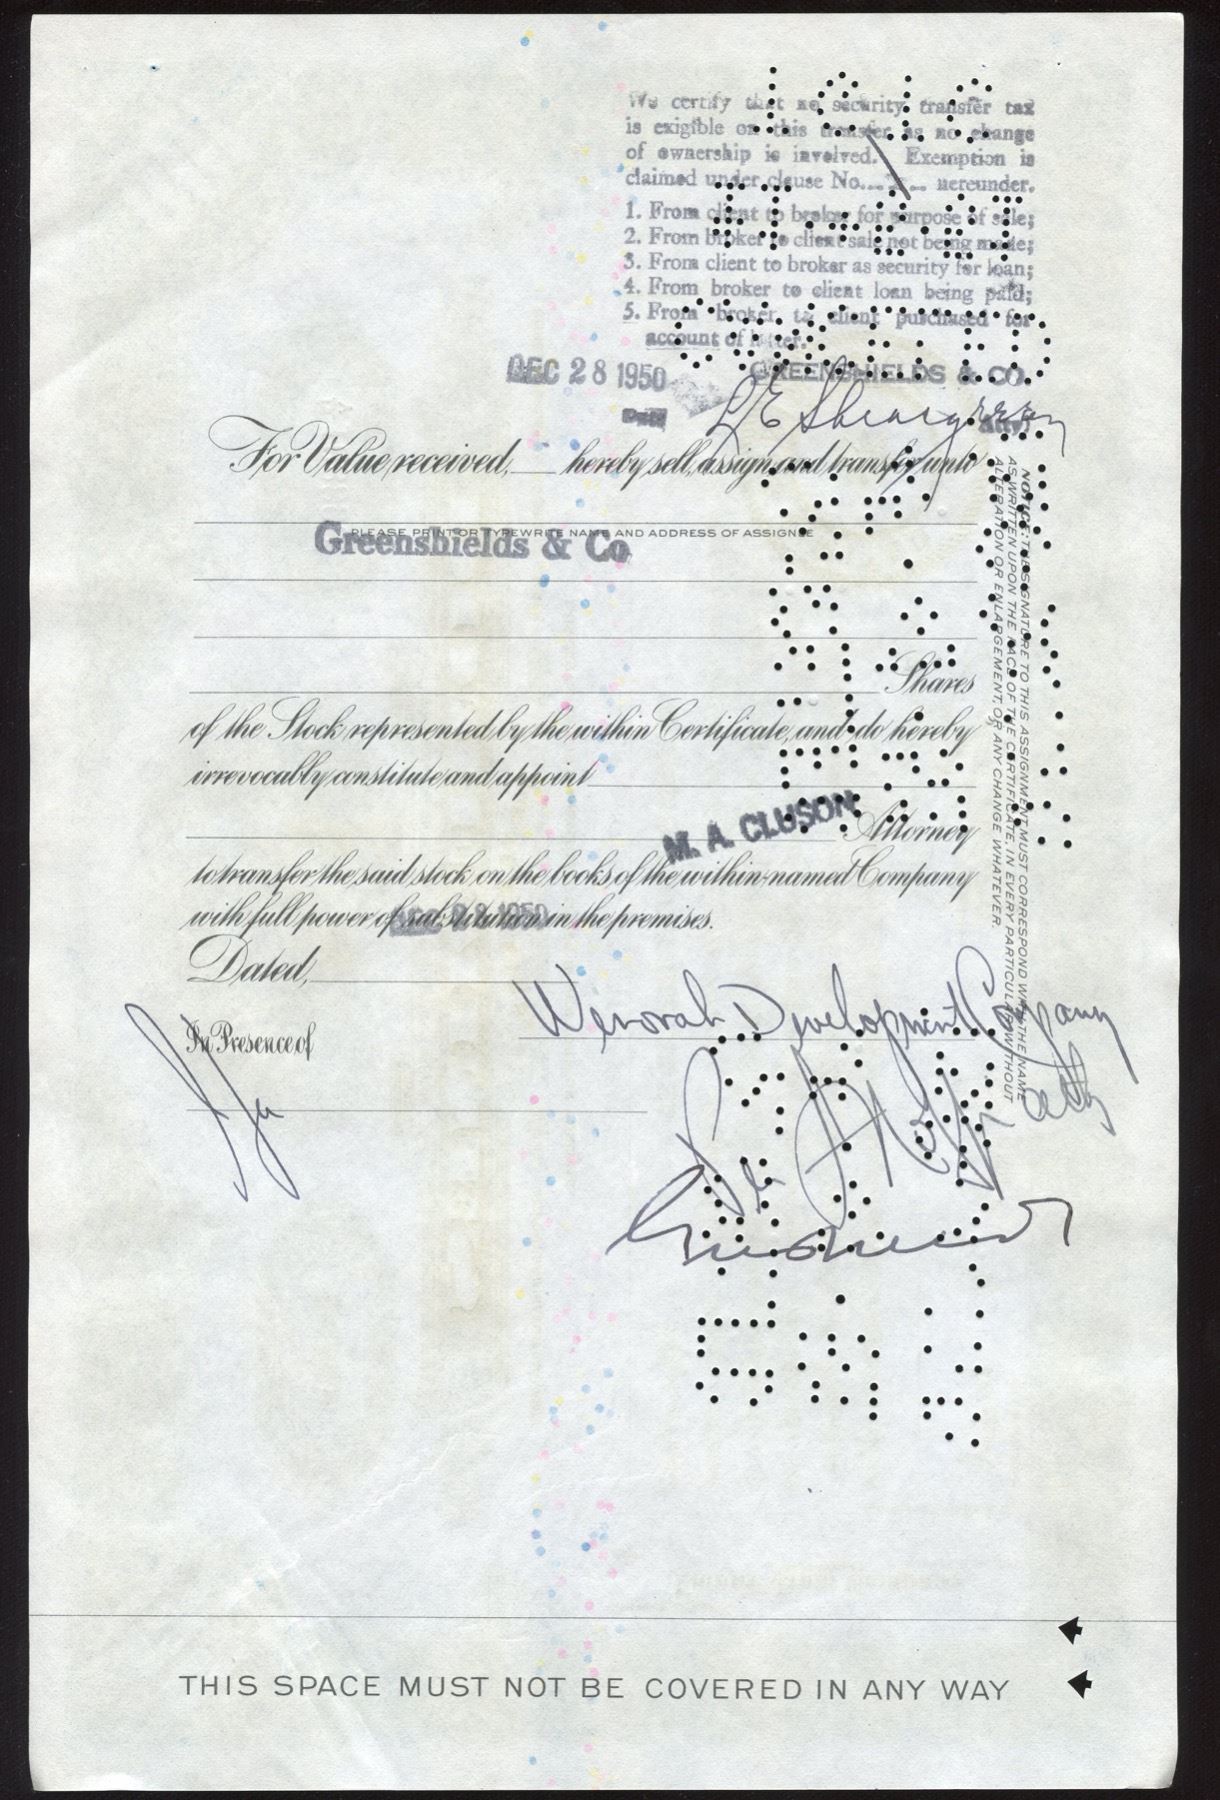 We certify that no security transfer tax
is exigible on this transfer as no change
of ownership is involved. Exemption is
claimed under clause No. hereunder.
1. From client to broker for purpose of sale;
2. From broker to client sale not being made;
3. From client to broker as security for loan;
4. From broker to client loan being paid;
5. From broker to client purchased for
account of latter.
DEC 28 1950
GREENSHIELDS & CO.
Date
Atty.
For Value received, hereby sell, assign and transfer unto
PLEASE PRINT OR TYPEWRITE NAME AND ADDRESS OF ASSIGNEE
Greenshields & Co
Shares
of the Stock represented by the within Certificate, and do hereby
irrevocably constitute and appoint
M. A. CLUSON
Attorney
to transfer the said stock on the books of the within-named Company
with full power of substitution in the premises.
DEC 28 1950
Dated,
Wenorah Development Company
In Presence of
NOTICE: THE SIGNATURE TO THIS ASSIGNMENT MUST CORRESPOND WITH THE NAME
AS WRITTEN UPON THE FACE OF THE CERTIFICATE, IN EVERY PARTICULAR, WITHOUT
ALTERATION OR ENLARGEMENT, OR ANY CHANGE WHATEVER.
THIS SPACE MUST NOT BE COVERED IN ANY WAY